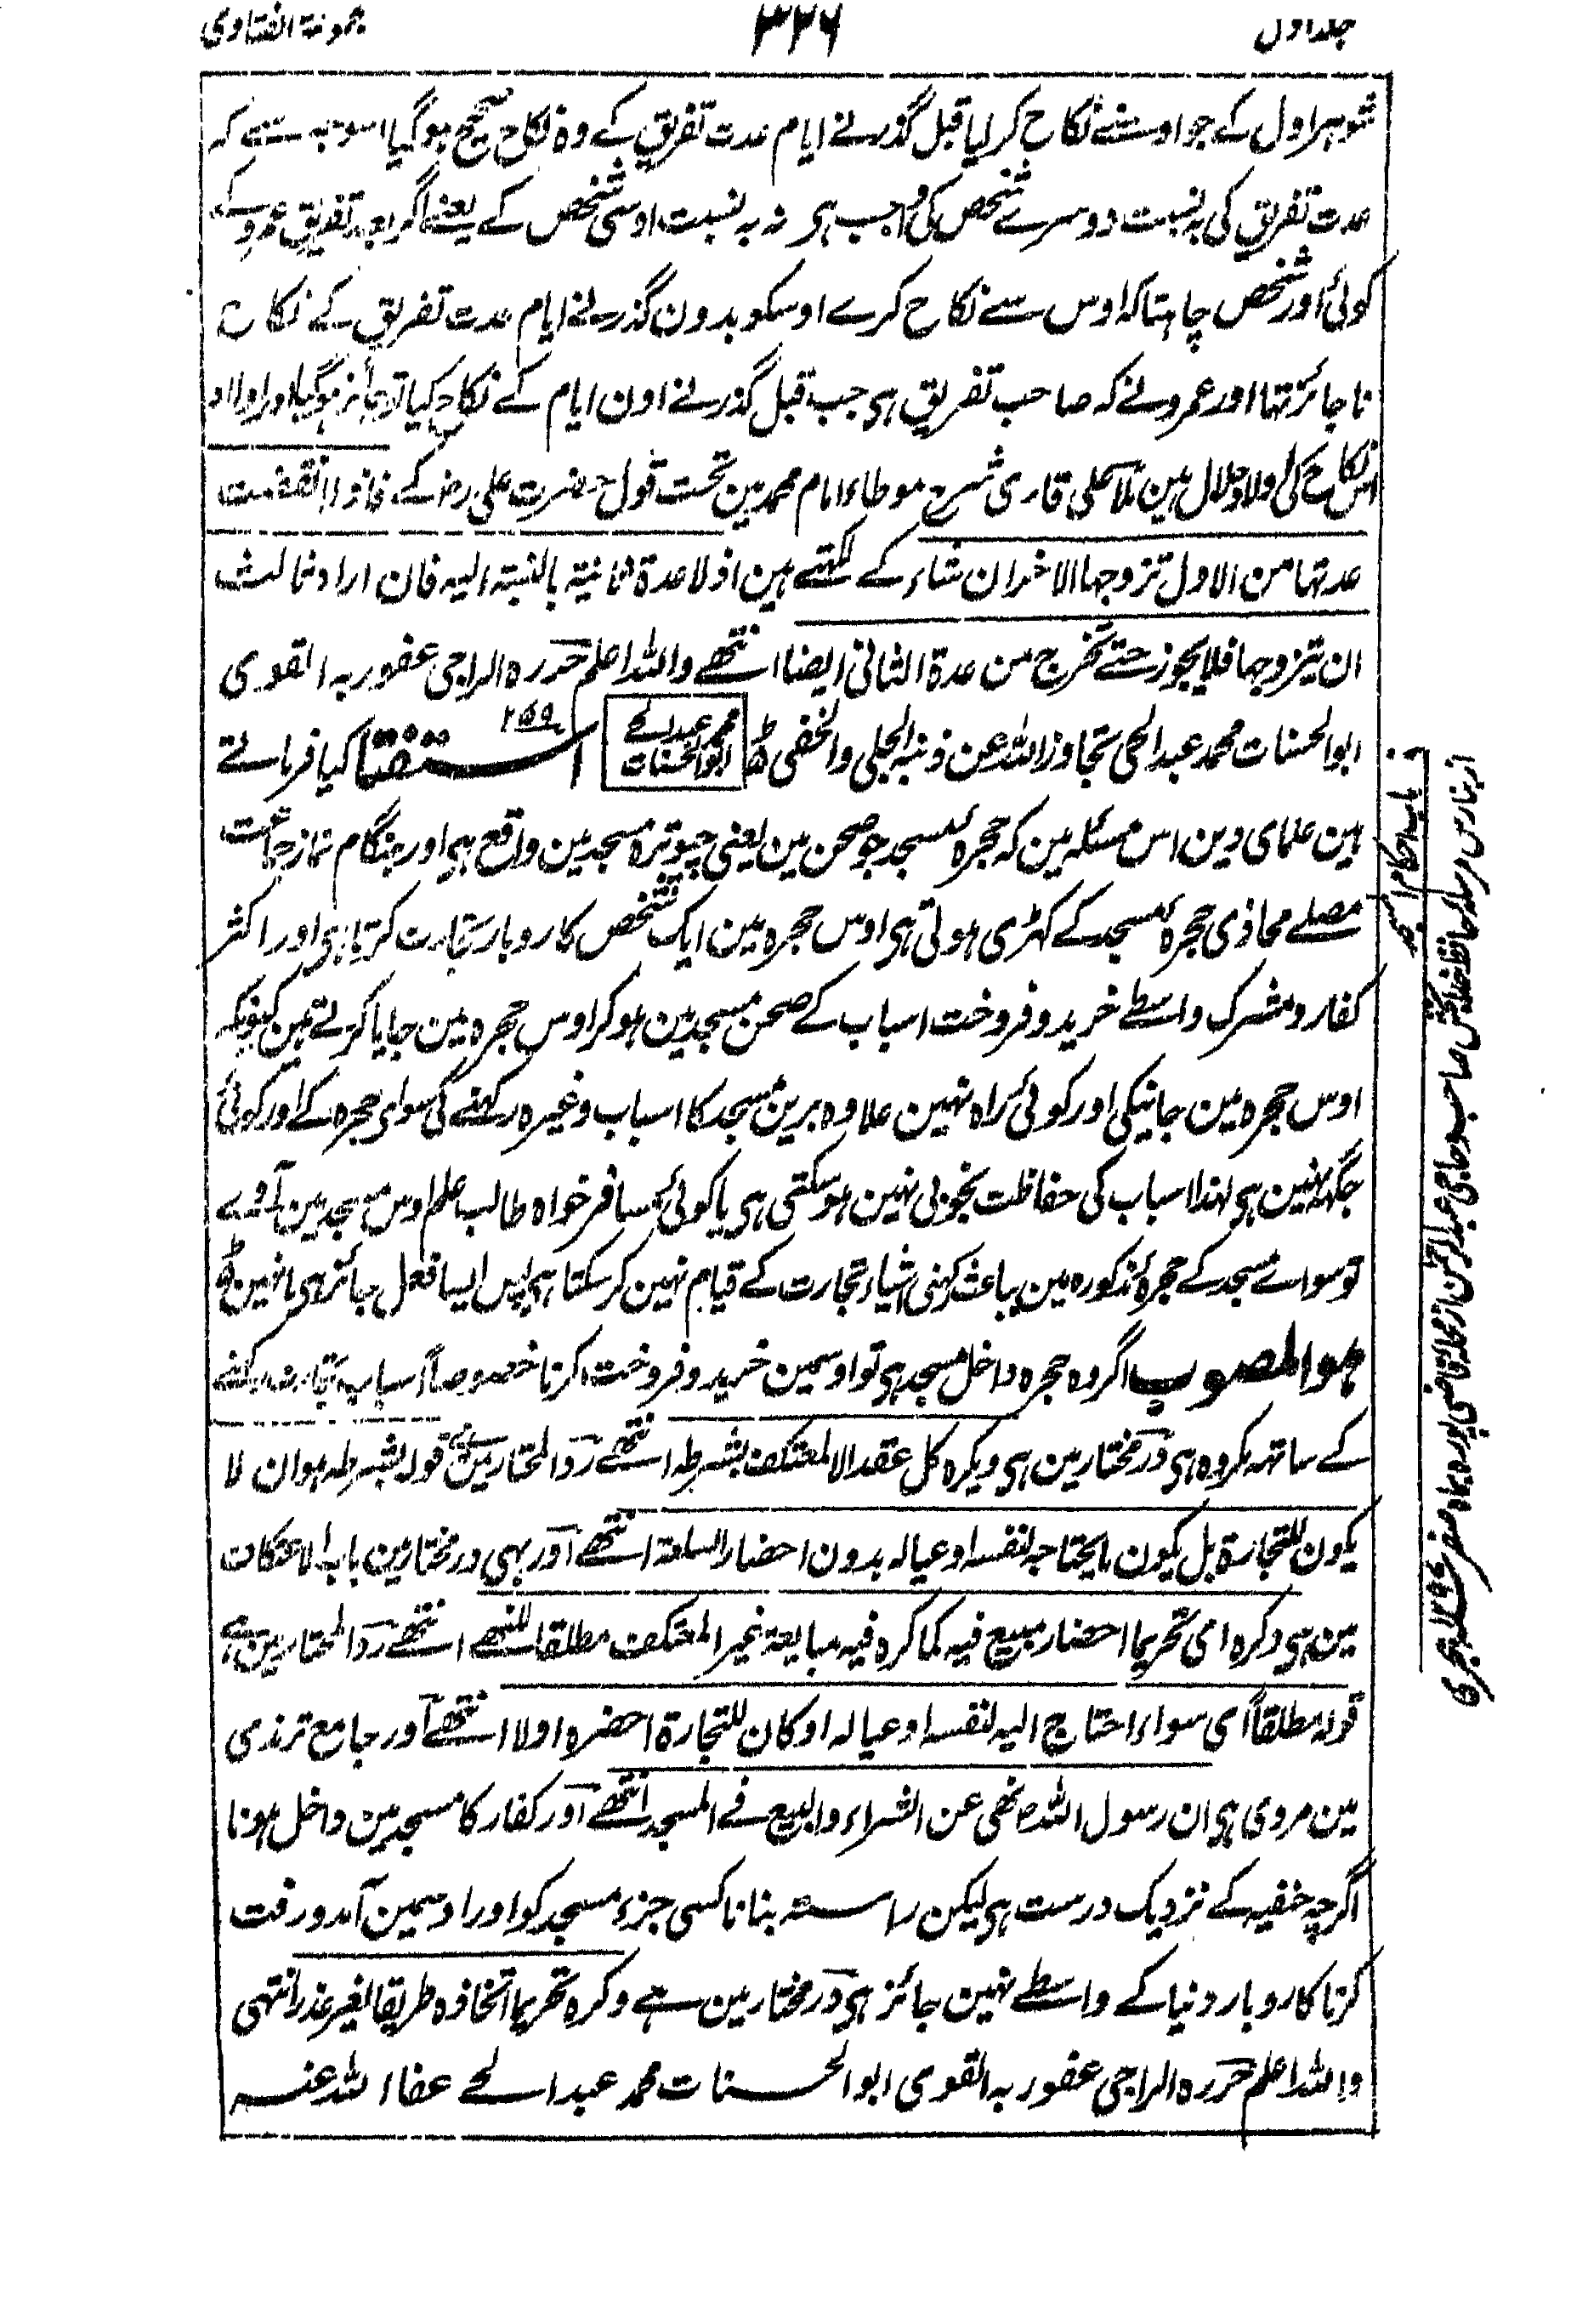 جلد اول
۳۲۶
مجموعۃ الفتاوی
شوہر اول کے جو اوسنے نکاح کر لیا قبل گذرنے ایام عدت تفریق کے وہ نکاح صحیح ہوگیا اسوجہ سے کہ
عدت تفریق کی بہ نسبت دوسرے شخص کی واجب ہی نہ بہ نسبت اوسی شخص کے یعنے اگر بعد تفریق عمرو کے
کوئی اور شخص چاہتا کہ اوس سے نکاح کرے اوسکو بدون گذرنے ایام عدت تفریق کے نکاح
ناجائز تھا اور عمرو نے کہ صاحب تفریق ہی جب قبل گذرنے اون ایام کے نکاح کیا تو جائز ہوگیا اور اولاد
اس نکاح کی اولاد حلال ہین ملا علی قاری شرح موطاء امام محمد مین تحت قول حضرت علی رض کے فاذا انقضت
عدتہا من الاول تزوجہا الاخر ان شاء کے لکھتے ہین اذ لا عدۃ ثانیۃ بالنسبۃ الیہ فان اراد ثالث
ان یتزوجہا فلا یجوز حتے تخرج من عدۃ الثانی ایضا انتھے واللہ اعلم حررہ الراجی عفو ربہ القوی
ابو الحسنات محمد عبد الحی تجاوز اللہ عن ذنبہ الجلی والخفی محمد عبد الحے ابو الحسنات استفتا کیا فرماتے
ہین علمای دین اس مسئلہ مین کہ حجرۂ مسجد جو صحن مین یعنی چبوترہ مسجد مین واقع ہی اور ہنگام نماز جماعت
مصلے محاذی حجرۂ مسجد کے کھڑی ہوتی ہی اوس حجرہ مین ایک شخص کاروبار تجارت کرتا ہی اور اکثر
کفار و مشرک واسطے خرید و فروخت اسباب کے صحن مسجد مین ہو کر اوس حجرہ مین جایا کرتے ہین کیونکہ
اوس حجرہ مین جانیکی اور کوئی راہ نہین علاوہ برین مسجد کا اسباب وغیرہ رکھنے کی سوای حجرہ کے اور کوئی
جگہ نہین ہی لہذا اسباب کی حفاظت بخوبی نہین ہو سکتی ہی یا کوئی مسافر خواہ طالب علم اوس مسجد مین آوے
تو سواے مسجد کے حجرۂ مذکورہ مین بباعث رکھنی اشیاء تجارت کے قیام نہین کر سکتا ہی پس ایسا فعل جائز ہی یا نہین
ہو المصوب اگر وہ حجرہ داخل مسجد ہی تو اوسمین خرید و فروخت کرنا خصوصاً اسباب تجارت رکھنے
کے ساتھ مکروہ ہی در مختار مین ہی ویکرہ کل عقد الا لمعتکف بشرطہ انتھے رد المحتار مین ہے قولہ بشرطہ ہو ان لا
یکون للتجارۃ بل یکون ما یحتاجہ لنفسہ او عیالہ بدون احضار السلعۃ انتھے اور بھی در مختار مین باب الاعتکاف
مین ہی وکرہ ای تحریما احضار مبیع فیہ کما کرہ فیہ مبایعۃ غیر المعتکف مطلقا للنھے انتھے رد المحتار مین ہے
قولہ مطلقاً ای سواء احتاج الیہ لنفسہ او عیالہ او کان للتجارۃ احضرہ اولا انتھے اور جامع ترمذی
مین مروی ہی ان رسول اللہ ص نھی عن الشراء والبیع فے المسجد انتھے اور کفار کا مسجد مین داخل ہونا
اگرچہ حنفیہ کے نزدیک درست ہی لیکن راستہ بنانا کسی جزء مسجد کو اور اوسمین آمد و رفت
کرنا کاروبار دنیا کے واسطے نہین جائز ہی در مختار مین ہے وکرہ تحریما اتخاذہ طریقا بغیر عذر انتہی
واللہ اعلم حررہ الراجی عفو ربہ القوی ابو الحسنات محمد عبد الحے عفا اللہ عنہ
باب احکام المسجد
از بنارس مرسلہ حافظ خدا بخش صاحب و حاجی عبد الرحمن از محلہ قاضی پورہ بماہ صفر ہجری